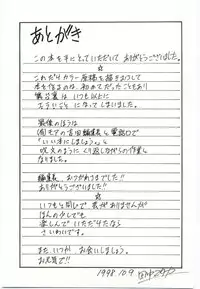 あとがき
この本を手にとっていただいて ありがとうございました。
☆
これだけカラー原稿を描きおろして
本を作るのは、初めてだったこともあり
製作は いつも以上に
大変なことに なってしまいました。
☆
最後のほうは
編集長と電話口で
「いい本にしましょう。」と
呪文のように くり返しながらの作業と
なりました。
編集長、おつかれさまでした!!
ありがとうございました!!
☆
いつもと同じで 芸がありませんが
ほんの少しでも
楽しんで いただけたなら
さいわいです。
☆
また いつか、お会いしましょう。
お元気で!!
1998.10.9